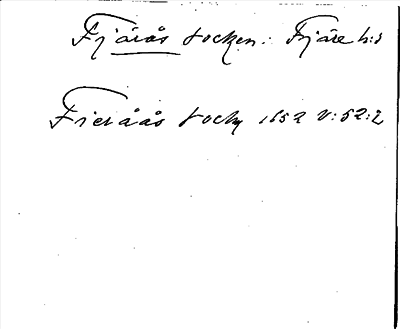 Fjärås socken: Fjäre h:d
Fieråås Sockn 1652 V:52:2